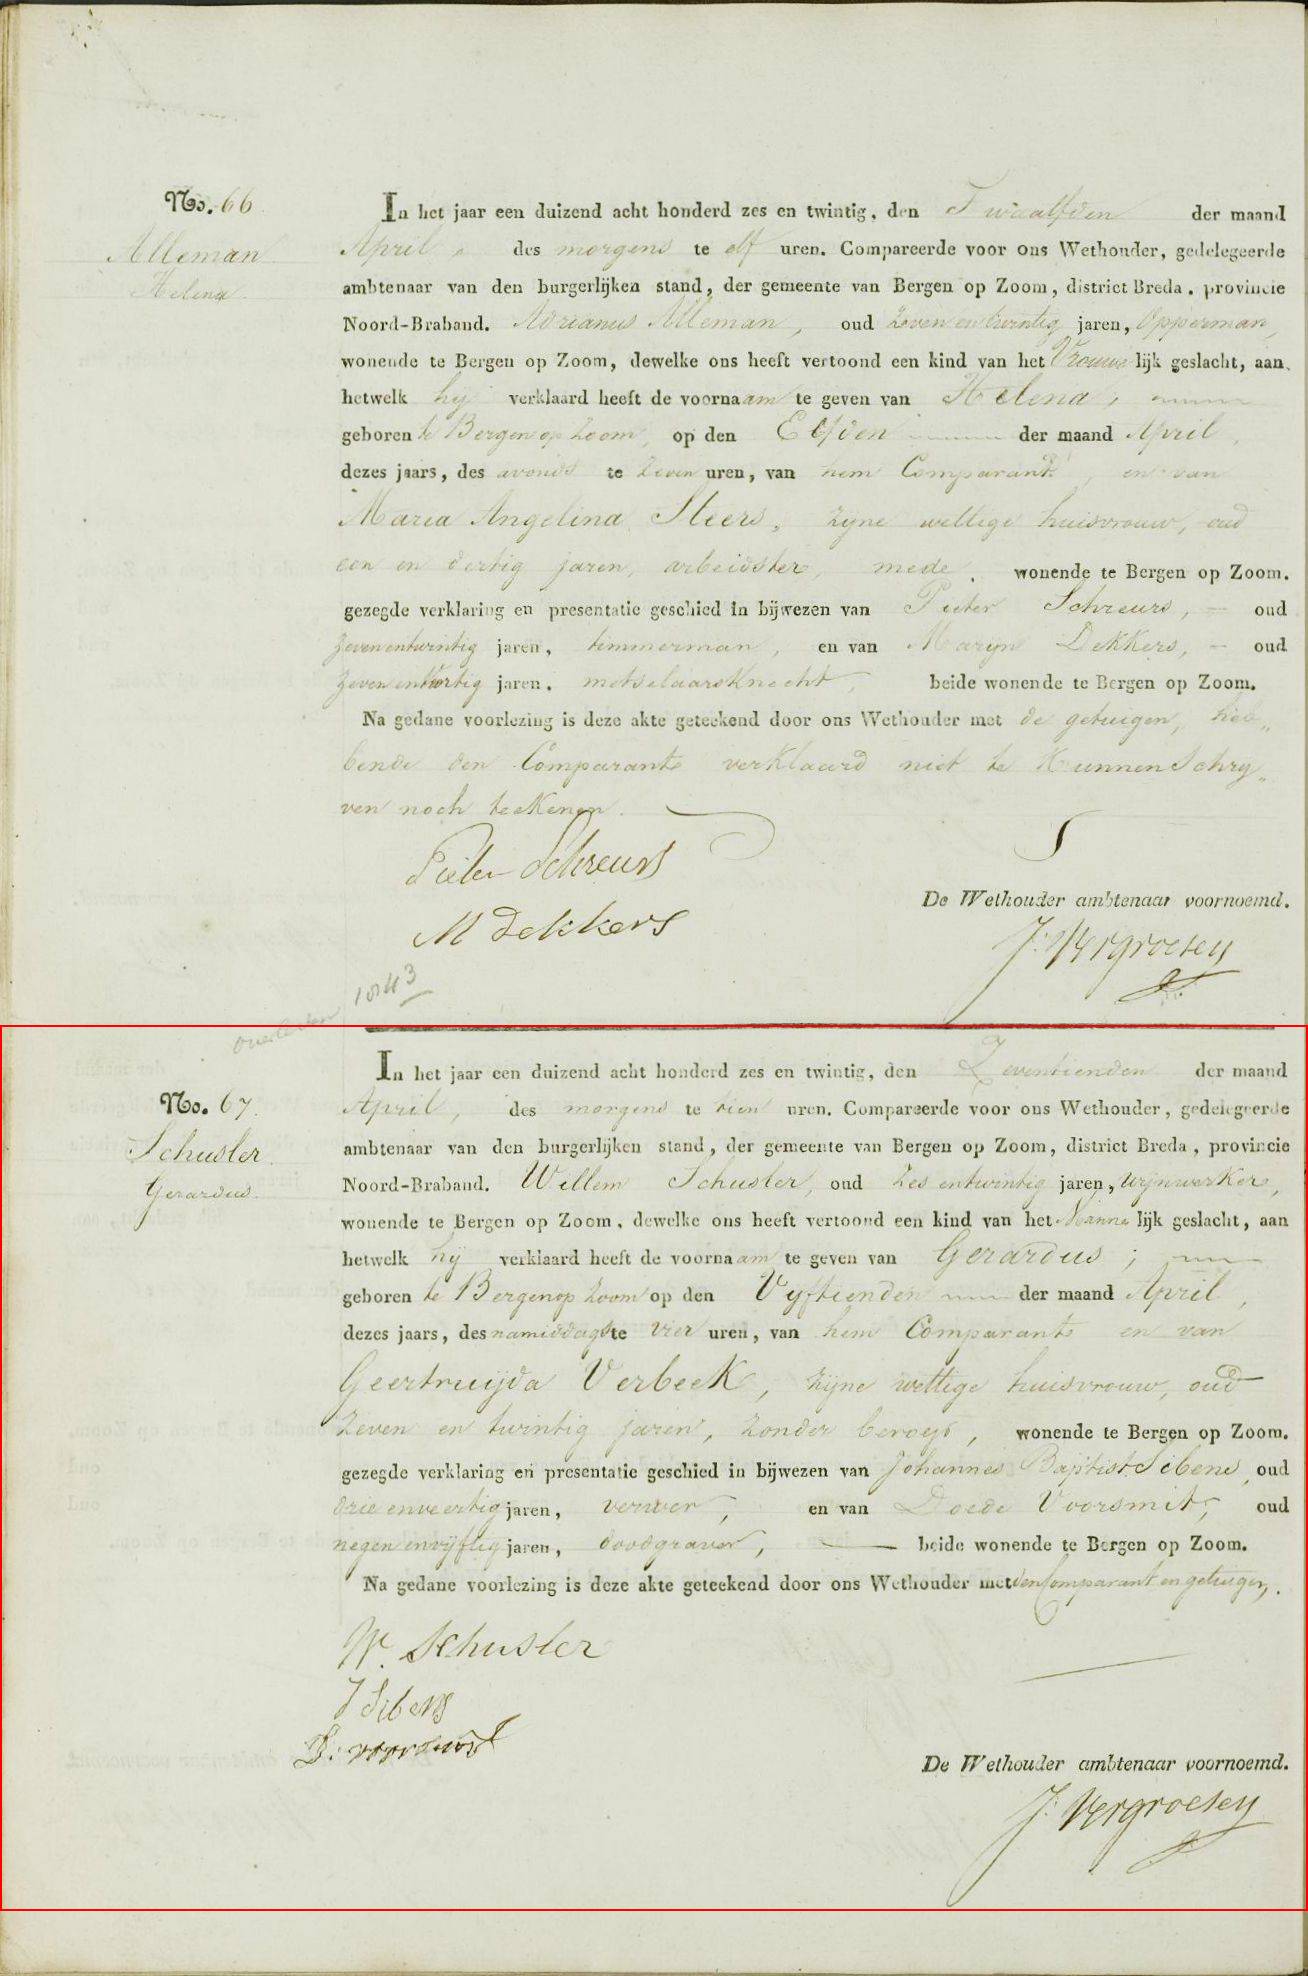 No. 66
Alleman
Helena.
In het jaar een duizend acht honderd zes en twintig, den Twaalfden der maand
April, des morgens te elf uren. Compareerde voor ons Wethouder, gedelegeerde
ambtenaar van den burgerlijken stand, der gemeente van Bergen op Zoom, district Breda, provincie
Noord-Braband. Adrianus Alleman, oud zeven en twintig jaren, Opperman,
wonende te Bergen op Zoom, dewelke ons heeft vertoond een kind van het Vrouwelijk geslacht, aan
hetwelk hij verklaard heeft de voornaam te geven van Helena,
geboren te Bergen op Zoom, op den Elfden der maand April,
dezes jaars, des avonds te zeven uren, van hem Comparant, en van
Maria Angelina Steers, zijne wettige huisvrouw, oud
een en dertig jaren, arbeidster, mede, wonende te Bergen op Zoom.
gezegde verklaring en presentatie geschied in bijwezen van Pieter Schreurs, oud
zevenentwintig jaren, timmerman, en van Maryn Dekkers, oud
zevenen jaren, metselaarsknecht, beide wonende te Bergen op Zoom.
Na gedane voorlezing is deze akte geteekend door ons Wethouder met de getuigen, heb„
bende den Comparants verklaard niet te Kunnen Schry„
ven noch teekenen.
Pieter Schreurs
M Dekkers
De Wethouder ambtenaar voornoemd.
J: Vergroesen
overleden 1843
No. 67.
Schusler
Gerardus.
In het jaar een duizend acht honderd zes en twintig, den Zeventienden der maand
April, des morgens te tien uren. Compareerde voor ons Wethouder, gedelegeerde
ambtenaar van den burgerlijken stand, der gemeente van Bergen op Zoom, district Breda, provincie
Noord-Braband. Willem Schusler, oud zes entwintig jaren, wijnwerker,
wonende te Bergen op Zoom, dewelke ons heeft vertoond een kind van het Mannelijk geslacht, aan
hetwelk hij verklaard heeft de voornaam te geven van Gerardus;
geboren te Bergenop Zoom op den Vyftienden der maand April,
dezes jaars, des namiddags te vier uren, van hem Comparant en van
Geertruijda Verbeek, zijne wettige huisvrouw, oud
Zeven en twintig jaren, zonder beroep, wonende te Bergen op Zoom.
gezegde verklaring en presentatie geschied in bijwezen van Johannes Baptist Sibens, oud
drie enveertig jaren, verwer, en van Doede Voorsmit, oud
negen envijftig jaren, doodgraver, beide wonende te Bergen op Zoom.
Na gedane voorlezing is deze akte geteekend door ons Wethouder met den Comparant en getuigen.
W. Schusler
J Sibens
D: voorsmit
De Wethouder ambtenaar voornoemd.
J: Vergroesen